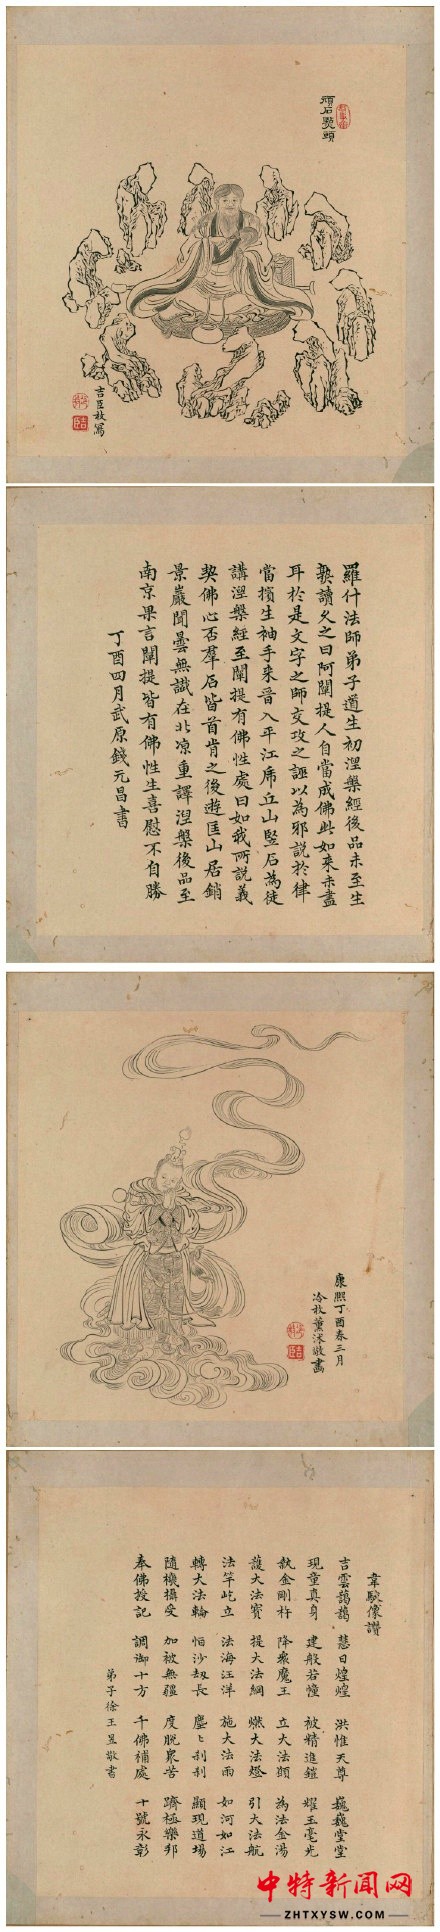 頑石點頭
吉臣枚寫
羅什法師弟子道生初涅槃經後品未至生
孰讀久之曰阿闡提人自當成佛此如來未盡
耳於是文字之師交攻之誣以為邪說於律
當擯生袖手來晉入平江席丘山豎石為徒
講涅槃經至闡提有佛性處曰如我所說義
契佛心否羣石皆首肯之後遊匡山居銷
景巖聞曇無讖在北凉重譯涅槃後品至
南京果言闡提皆有佛性生喜慰不自勝
丁酉四月武原錢元昌書
康熙丁酉春三月
冷枚薰沐敬畫
韋馱像讚
吉雲藹藹 慧日煌煌 洪惟天尊 巍巍堂堂
現童真身 建般若幢 被精進鎧 耀玉毫光
執金剛杵 降衆魔王 立大法願 為法金湯
護大法寶 提大法綱 燃大法燈 引大法航
法竿屹立 法海汪洋 施大法雨 如河如江
轉大法輪 恒沙劫長 塵〻刹刹 顯現道場
隨機攝受 加被無疆 度脫衆苦 躋極樂邦
奉佛授記 調御十方 千佛補處 十號永彰
弟子徐王昱敬書
中特新闻网
ZHTXYSW.COM